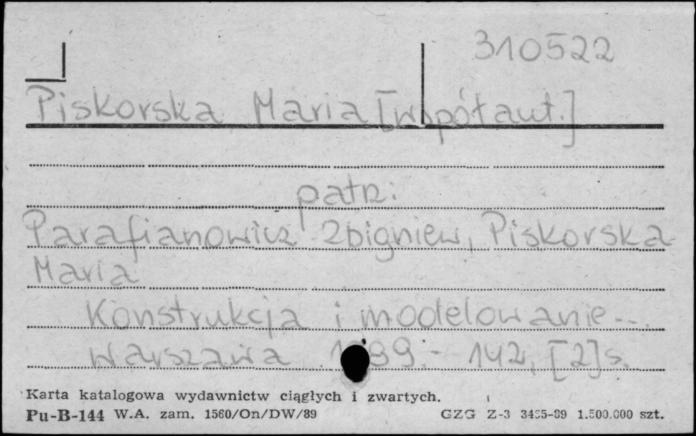 310522
Piskorska Maria [współaut.]
patrz:
Parafianowicz Zbigniew, Piskorska
Maria
Konstrukcja i modelowanie...
Warszawa 1989. - 142, [2] s.
Karta katalogowa wydawnictw ciągłych i zwartych.
Pu-B-144 W.A. zam. 1560/On/DW/89 GZG Z-3 3435-89 1.500.000 szt.